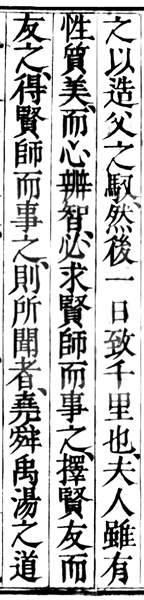 之以造父之馭、然後一日致千里也、夫人雖有
性質美、而心辨智、必求賢師而事之、擇賢友而
友之、得賢師而事之、則所聞者、堯舜禹湯之道